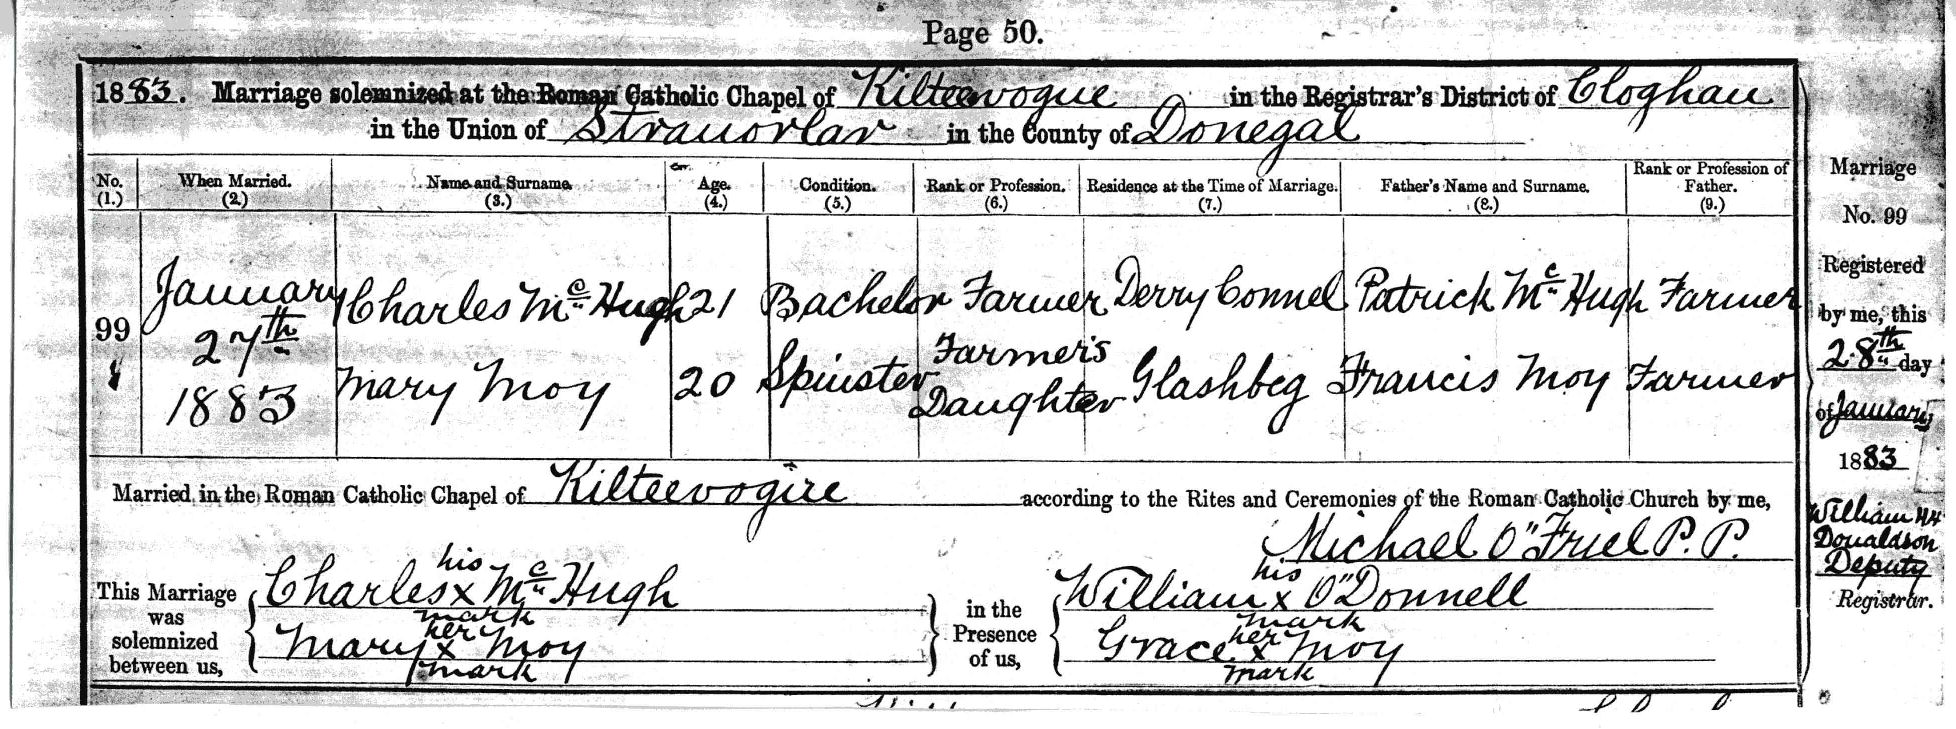 Page 50.
1883. Marriage solemnized at the Roman Catholic Chapel of Kilteevogue in the Registrar's District of Cloghan
in the Union of Stranorlar in the County of Donegal
No. (1.) When Married. (2.) Name and Surname. (3.) Age. (4.) Condition. (5.) Rank or Profession. (6.) Residence at the Time of Marriage. (7.) Father's Name and Surname. (8.) Rank or Profession of Father. (9.)
99 January 27th 1883
Charles McHugh 21 Bachelor Farmer Derry Connel Patrick McHugh Farmer
Mary Moy 20 Spinster Farmer's Daughter Glashbeg Francis Moy Farmer
Married in the Roman Catholic Chapel of Kilteevogue according to the Rites and Ceremonies of the Roman Catholic Church by me,
Michael O'Friel P.P.
This Marriage was solemnized between us,
Charles his x mark McHugh
Mary her x mark Moy
in the Presence of us,
William his x mark O'Donnell
Grace her x mark Moy
Marriage
No. 99
Registered
by me, this
28th day
of January
1883
William
Donaldson
Deputy
Registrar.